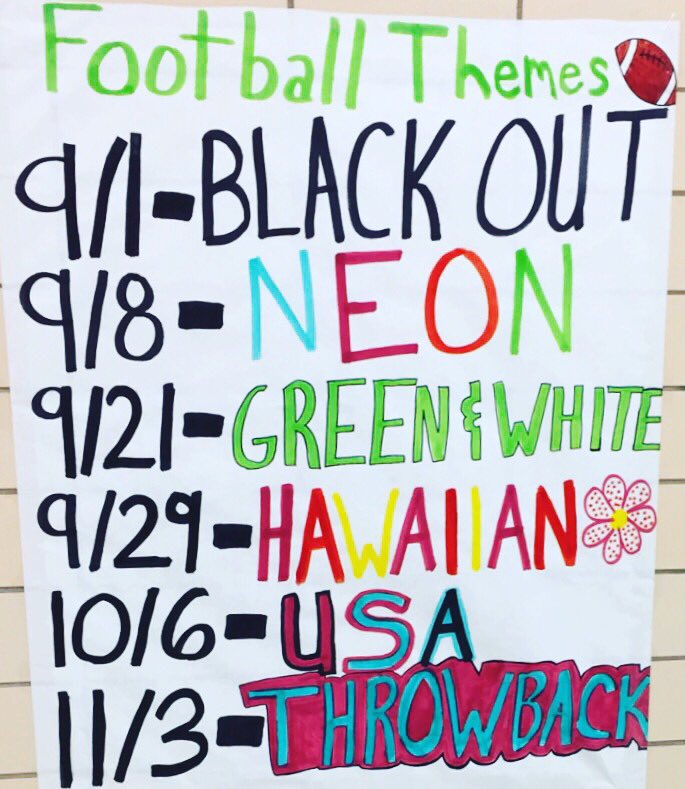 Football Themes
9/1-BLACK OUT
9/8-NEON
9/21-GREEN & WHITE
9/29-HAWAIIAN
10/6-USA
11/3-THROWBACK